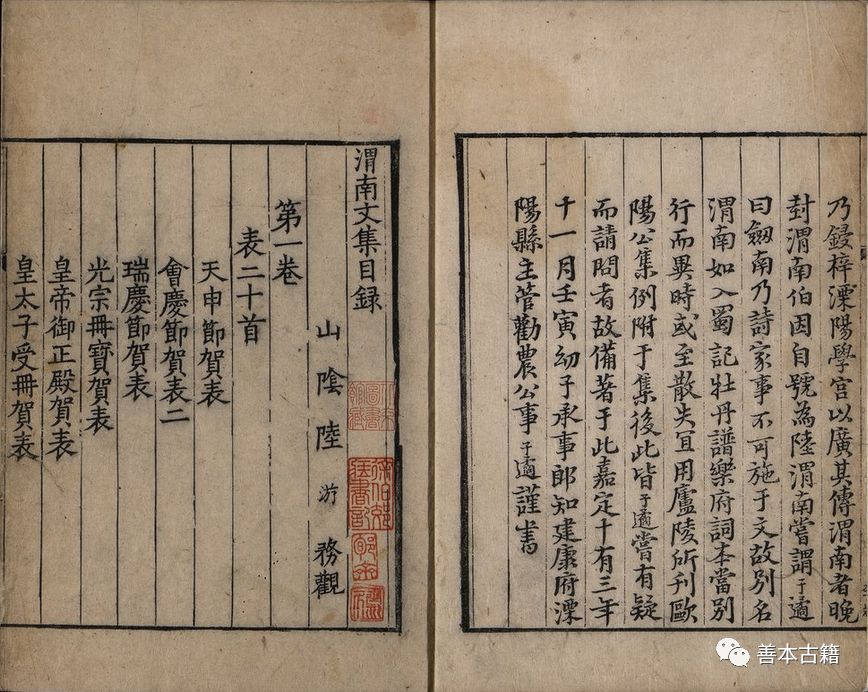 乃鋟梓溧陽學官以廣其傳渭南者晚
封渭南伯因自號為陸渭南嘗謂子遹
曰劔南乃詩家事不可施于文故別名
渭南如入蜀記牡丹譜樂府詞本當別
行而異時或至散失宜用廬陵所刊歐
陽公集例附于集後此皆子遹嘗有疑
而請問者故備著于此嘉定十有三年
十一月壬寅幼子承事郎知建康府溧
陽縣主管勸農公事子遹謹書
渭南文集目録
山陰陸游務觀
第一卷
表二十首
天申節賀表
會慶節賀表二
瑞慶節賀表
光宗冊寶賀表
皇帝御正殿賀表
皇太子受冊賀表
善本古籍